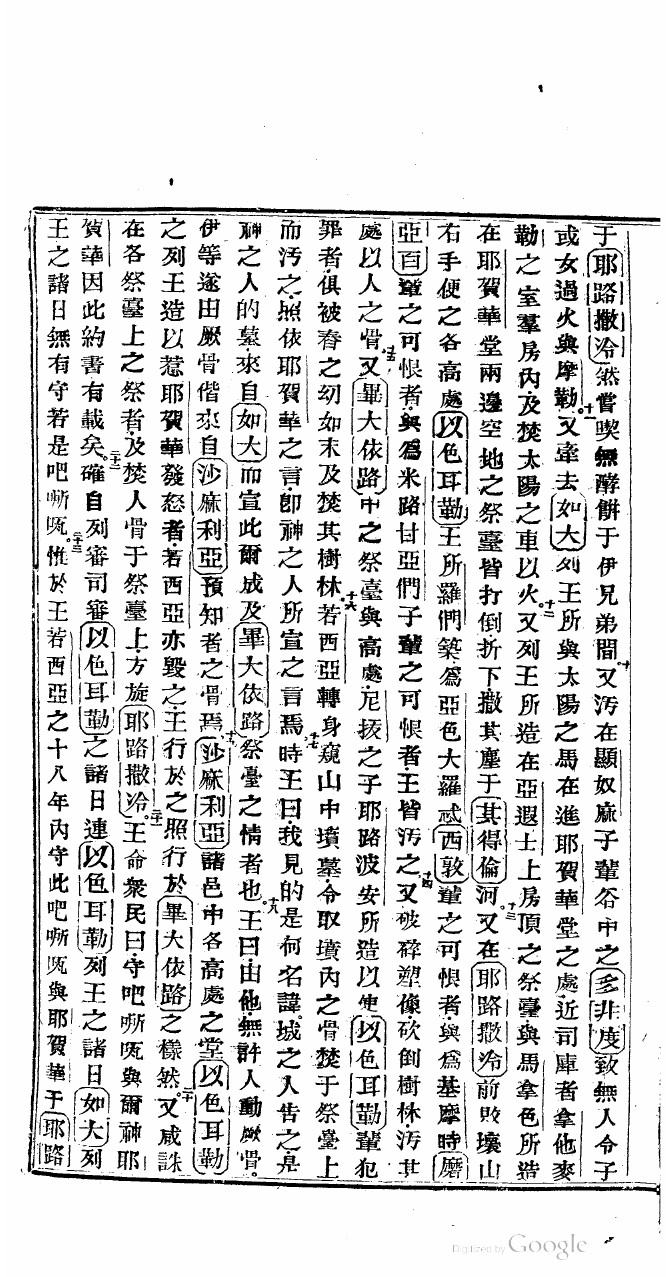 于耶路撒冷然嘗喫無酵餅于伊兄弟間十又汚在顯奴麻子輩谷中之多非度致無人令子
或女過火與摩勒十一又牽去如大列王所與太陽之馬在進耶賀華堂之處近司庫者拿他麥
勒之室羣房內及焚太陽之車以火十二又列王所造在亞遐士上房頂之祭臺與馬拿色所造
在耶賀華堂兩邊空地之祭臺皆打倒折下撒其塵于其得倫河十三又在耶路撒冷前敗壞山
右手便之各高處以色耳勒王所羅們築爲亞色大羅忒西敦輩之可恨者與爲基摩時磨
亞百輩之可恨者與爲米路甘亞們子輩之可恨者王皆汚之十四又破碎塑像砍倒樹林汚其
處以人之骨十五又畢大依路中之祭臺與高處尼拔之子耶路波安所造以使以色耳勒輩犯
罪者俱被舂之幼如末及焚其樹林十六若西亞轉身窺山中墳墓令取墳內之骨焚于祭臺上
而汚之照依耶賀華之言卽神之人所宣之言焉十七時王曰我見的是何名諱城之人告之是
神之人的墓來自如大而宣此爾成及畢大依路祭臺之情者也十八王曰由他無許人動厥骨
伊等遂由厥骨偕來自沙麻利亞預知者之骨焉十九沙麻利亞諸邑中各高處之堂以色耳勒
之列王造以惹耶賀華發怒者若西亞亦毀之王行於之照行於畢大依路之樣然二十又咸誅
在各祭臺上之祭者及焚人骨于祭臺上方旋耶路撒冷二一王命衆民曰守吧嘶㕖與爾神耶
賀華因此約書有載矣二十二確自列審司審以色耳勒之諸日連以色耳勒列王之諸日如大列
王之諸日無有守若是吧嘶㕖二十三惟於王若西亞之十八年內守此吧嘶㕖與耶賀華于耶路
Digitized by Google